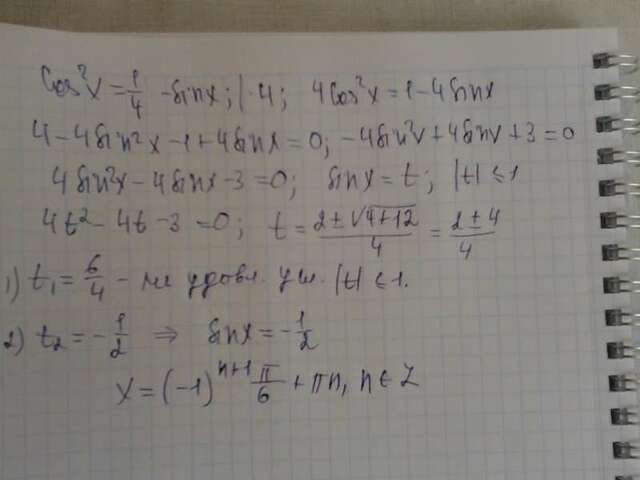 Cos²x = 1/4 - sinx; |·4; 4Cos²x = 1 - 4sinx
4 - 4sin²x - 1 + 4sinx = 0; -4sin²x + 4sinx + 3 = 0
4sin²x - 4sinx - 3 = 0; sinx = t; |t| ≤ 1
4t² - 4t - 3 = 0; t = (2 ± √(4+12))/4 = (2 ± 4)/4
1) t₁ = 6/4 - не удовл. усл. |t| ≤ 1.
2) t₂ = -1/2 ⇒ sinx = -1/2
x = (-1)ⁿ⁺¹ π/6 + πn, n ∈ Z